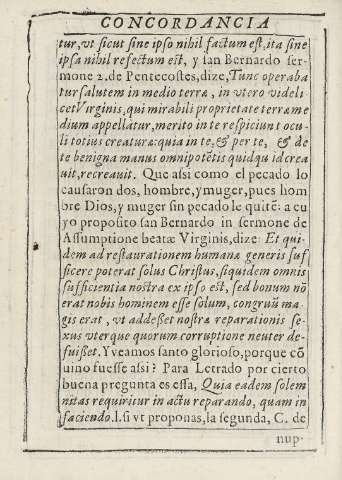 CONCORDANCIA
tur, vt sicut sine ipso nihil factum est, ita sine
ipsa nihil refectum est, y san Bernardo ser-
mone 2. de Pentecostes, dize, Tunc operaba
tur salutem in medio terræ, in vtero videli
cet Virginis, qui mirabili proprietate terræ me
dium appellatur, merito in te respiciunt ocu-
li totius creaturæ: quia in te, & per te, & de
te benigna manus omnipotētis quidqu id crea
uit, recreauit. Que assi como el pecado lo
causaron dos, hombre, y muger, pues hom
bre Dios, y muger sin pecado le quitē: a cu
yo proposito san Bernardo in sermone de
Assumptione beatæ Virginis, dize: Et qui-
dem ad restaurationem humanæ generis suf
ficere poterat solus Christus, siquidem omnis
sufficientia nostra ex ipso est, sed bonum nō
erat nobis hominem esse solum, congruū ma
gis erat, vt addeßet nostræ reparationis se-
xus vterque quorum corruptione neuter de-
fuißet. Y veamos santo glorioso, porque cō
uino fuesse assi? Para Letrado por cierto
buena pregunta es essa, Quia eadem solem
nitas requiritur in actu reparando, quam in
faciendo. l. si vt proponas, la segunda, C. de
nup-